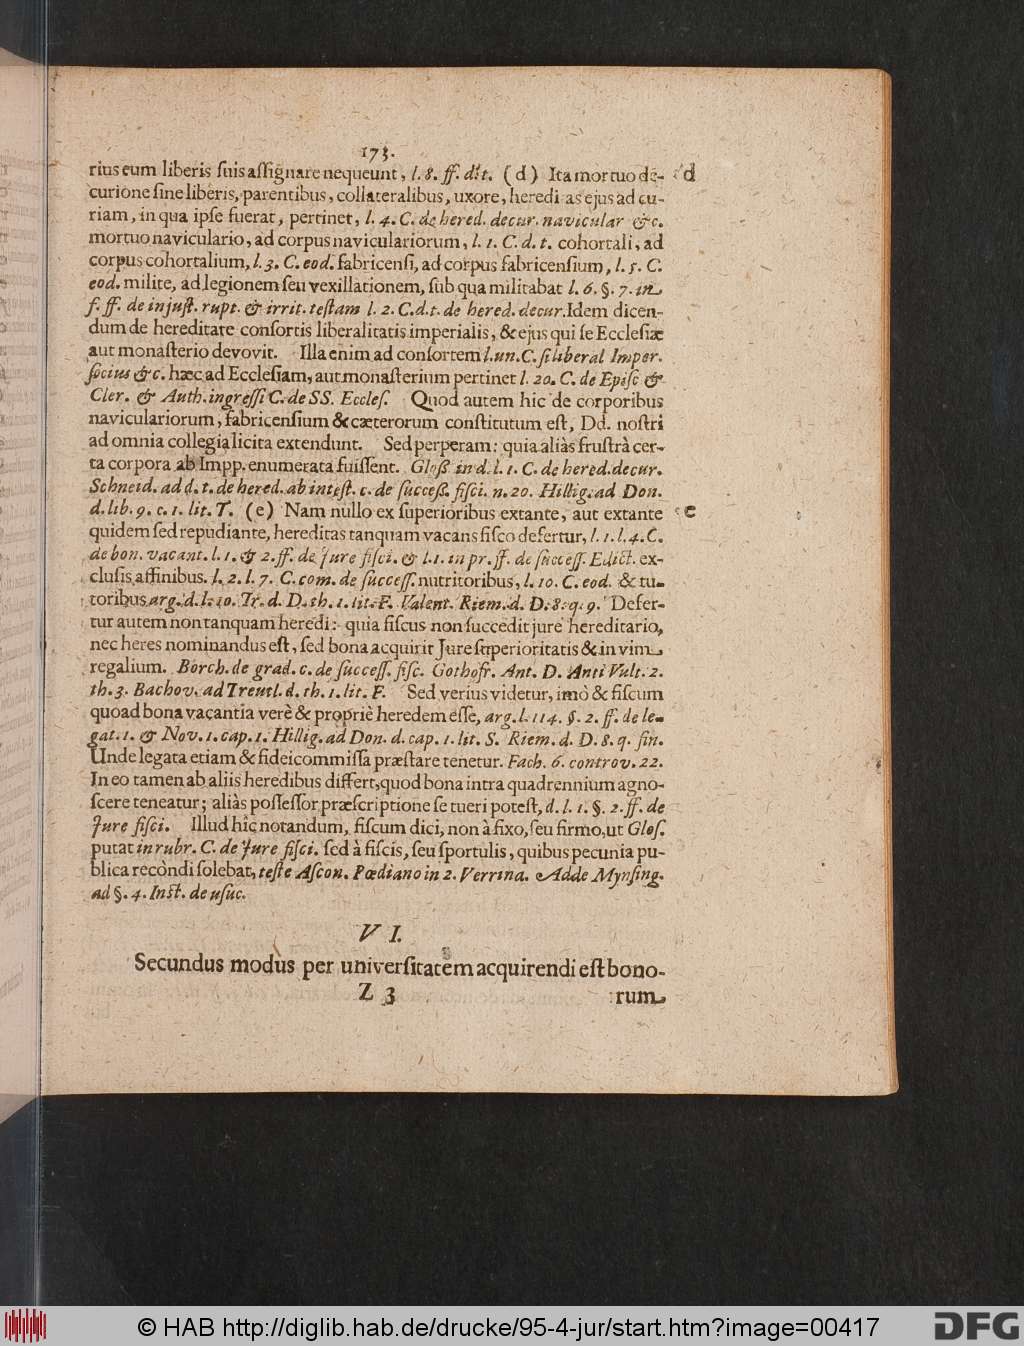 173.
rius eum liberis suis assignare nequeunt, l. 8. ff. dit. (d) Ita mortuo de- d
curione sine liberis, parentibus, collateralibus, uxore, heredi as ejus ad cu-
riam, in qua ipse fuerat, pertinet, l. 4. C. de hered. decur. navicular &c.
mortuo naviculario, ad corpus naviculariorum, l. 1. C. d. t. cohortali, ad
corpus cohortalium, l. 3. C. eod. fabricensi, ad corpus fabricensium, l. 5. C.
eod. milite, ad legionem seu vexillationem, sub qua militabat l. 6. §. 7. in
f. ff. de injust. rupt. & irrit. testam l. 2. C. d. t. de hered. decur. Idem dicen-
dum de hereditate consortis liberalitatis imperialis, & ejus qui se Ecclesiæ
aut monasterio devovit. Illa enim ad consortem l. un. C. si liberal Imper.
socius &c. hæc ad Ecclesiam, aut monasterium pertinet l. 20. C. de Episc &
Cler. & Auth. ingressi C. de SS. Eccles. Quod autem hic de corporibus
naviculariorum, fabricensium & cæterorum constitutum est, Dd. nostri
ad omnia collegia licita extendunt. Sed perperam: quia aliàs frustrà cer-
ta corpora ab Impp. enumerata fuissent. Gloß in d. l. 1. C. de hered. decur.
Schneid. ad d. t. de hered. ab intest. c. de success. fisci. n. 20. Hillig. ad Don.
d. lib. 9. c. 1. lit. T. (e) Nam nullo ex superioribus extante, aut extante e
quidem sed repudiante, hereditas tanquam vacans fisco defertur, l. 1. l. 4. C.
de bon. vacant. l. 1. & 2. ff. de Jure fisci. & l. 1. in pr. ff. de success. Edict. ex-
clusis affinibus. l. 2. l. 7. C. com. de success. nutritoribus, l. 10. C. eod. & tu-
toribus arg. d. l. 10. Tr. d. D. th. 1. lit. F. Valent. Riem. d. D. 8. q. 9. Defer-
tur autem non tanquam heredi: quia fiscus non succedit jure hereditario,
nec heres nominandus est, sed bona acquirit Jure superioritatis & in vim
regalium. Borch. de grad. c. de success. fisc. Gothofr. Ant. D. Anti Vult. 2.
th. 3. Bachov. ad Treutl. d. th. 1. lit. F. Sed verius videtur, imò & fiscum
quoad bona vacantia verè & propriè heredem esse, arg. l. 114. §. 2. ff. de le-
gat. 1. & Nov. 1. cap. 1. Hillig. ad Don. d. cap. 1. lit. S. Riem. d. D. 8. q. fin.
Unde legata etiam & fideicommissa præstare tenetur. Fach. 6. controv. 22.
In eo tamen ab aliis heredibus differt, quod bona intra quadrennium agno-
scere teneatur; aliàs possessor præscriptione se tueri potest, d. l. 1. §. 2. ff. de
Jure fisci. Illud hîc notandum, fiscum dici, non à fixo, seu firmo, ut Glos.
putat in rubr. C. de Jure fisci. sed à fiscis, seu sportulis, quibus pecunia pu-
blica recòndi solebat, teste Ascon. Pœdiano in 2. Verrina. Adde Mynsing.
ad §. 4. Inst. de usuc.
VI.
Secundus modus per universitatem acquirendi est bono-
Z 3 rum
© HAB http://diglib.hab.de/drucke/95-4-jur/start.htm?image=00417
DFG